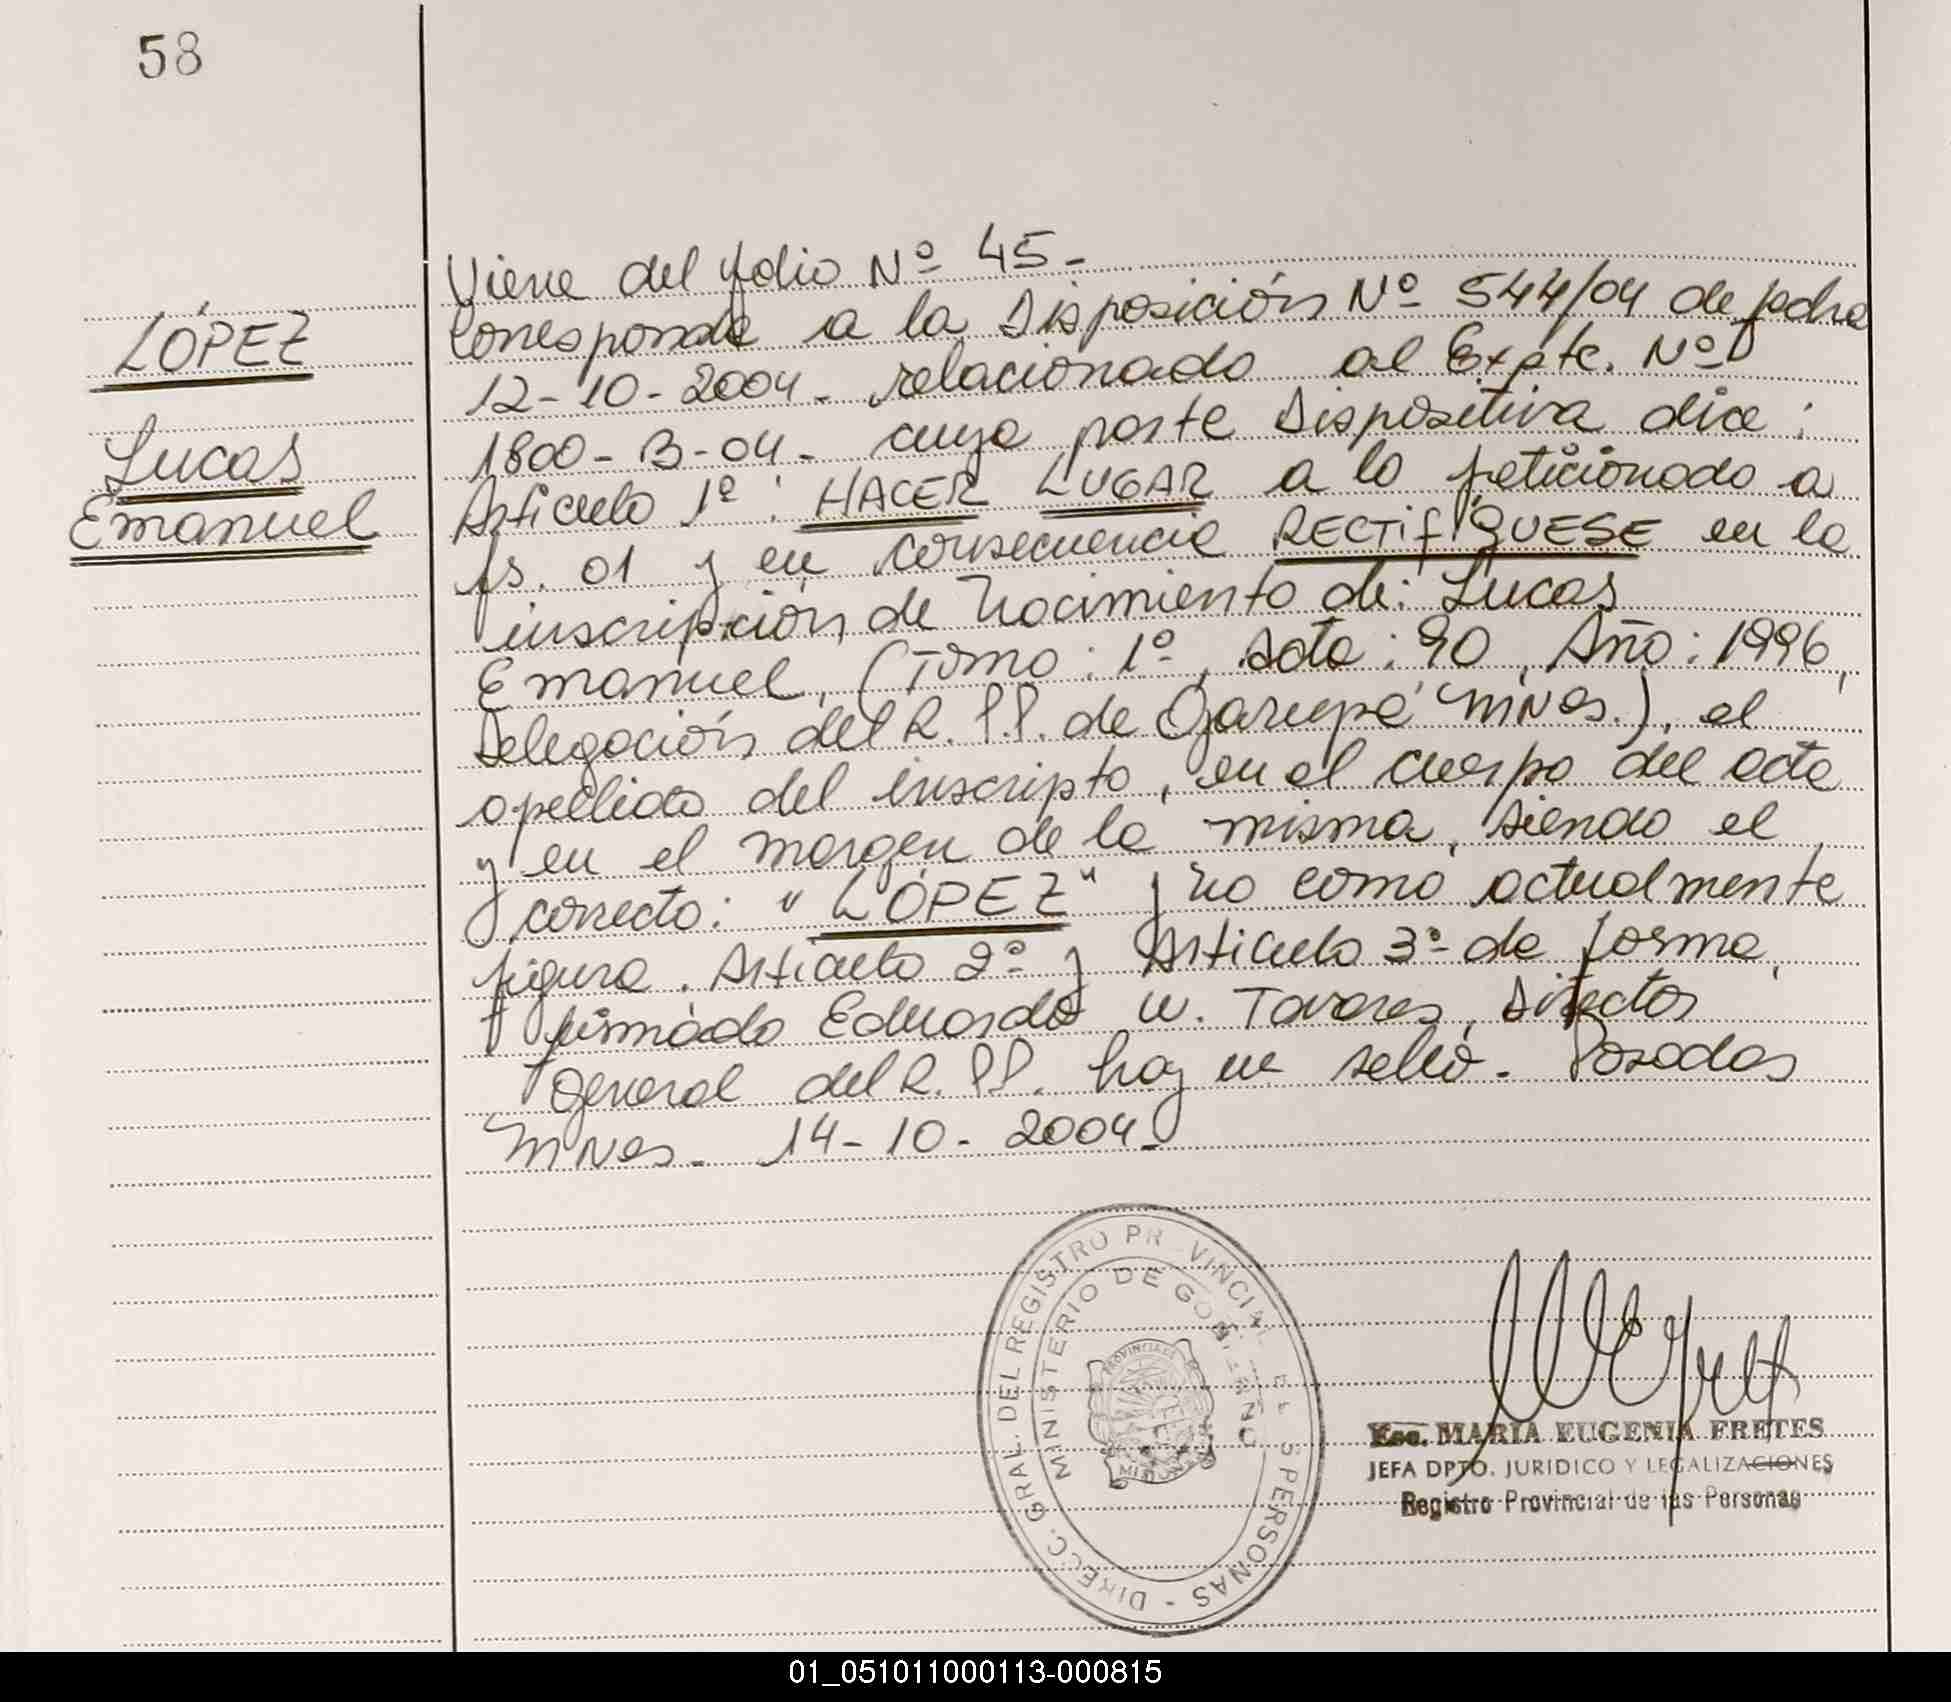 58
LÓPEZ
Lucas
Emanuel
Viene del folio Nº 45.-
Corresponde a la Disposición Nº 544/04 de fecha
12-10-2004.- relacionado al Expte. Nº
1800-B-04.- cuya parte Dispositiva dice:
Artículo 1º: HACER LUGAR a lo peticionado a
fs. 01 y en consecuencia RECTIFIQUESE en la
inscripción de Nacimiento de: Lucas
Emanuel, (Tomo: 1º, Acta: 90, Año: 1996,
Delegación del R. P.P. de Garupá Mnes.), el
apellido del inscripto, en el cuerpo del acta
y en el margen de la misma, siendo el
correcto: "LÓPEZ" y no como actualmente
figura. Artículo 2º y Artículo 3º de forma,
firmado Eduardo W. Tavares, Director
General del R. P.P. hay un sello.- Posadas
Mnes.- 14-10-2004.-
DIRECC. GRAL. DEL REGISTRO PR VINCIAL E L S PERSONAS -
MINISTERIO DE GOBIERNO
Esc. MARIA EUGENIA FRETES
JEFA DPTO. JURIDICO Y LEGALIZACIONES
Registro Provincial de las Personas
01_051011000113-000815